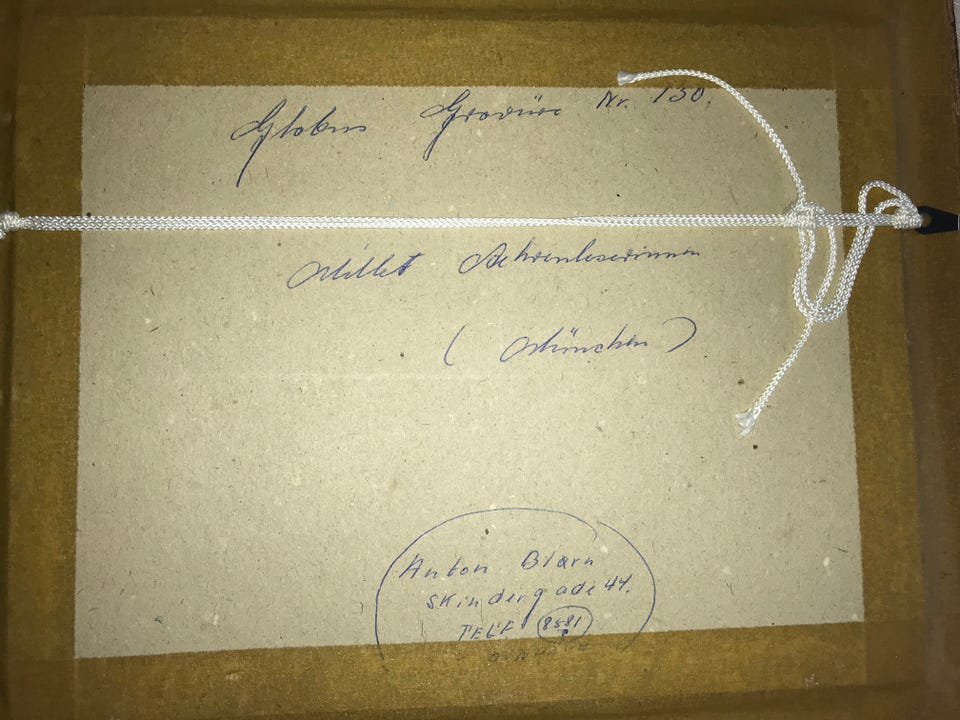 Globus Gravüre Nr. 130.
Millet Aehrenleserinnen
(München)
Anton Blærn
Skindergade 44.
TELF 8581